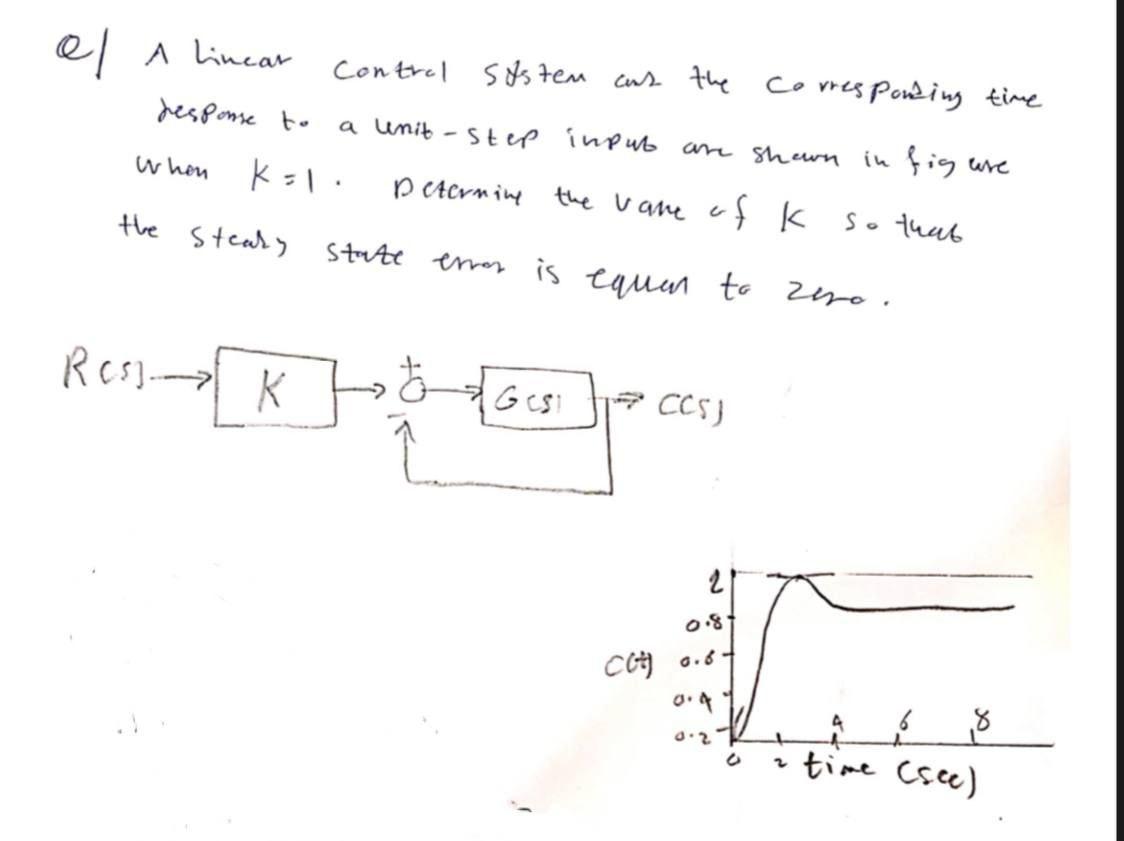 e/ A linear control system and the corresponding time
response to a unit-step input are shown in figure
when K=1. Determine the value of K so that
the steady state error is equal to zero.
R(S) K + - G(S) C(S)
1
0.8
C(t) 0.6
0.4
0.2
0 2 4 6 8
time (sec)